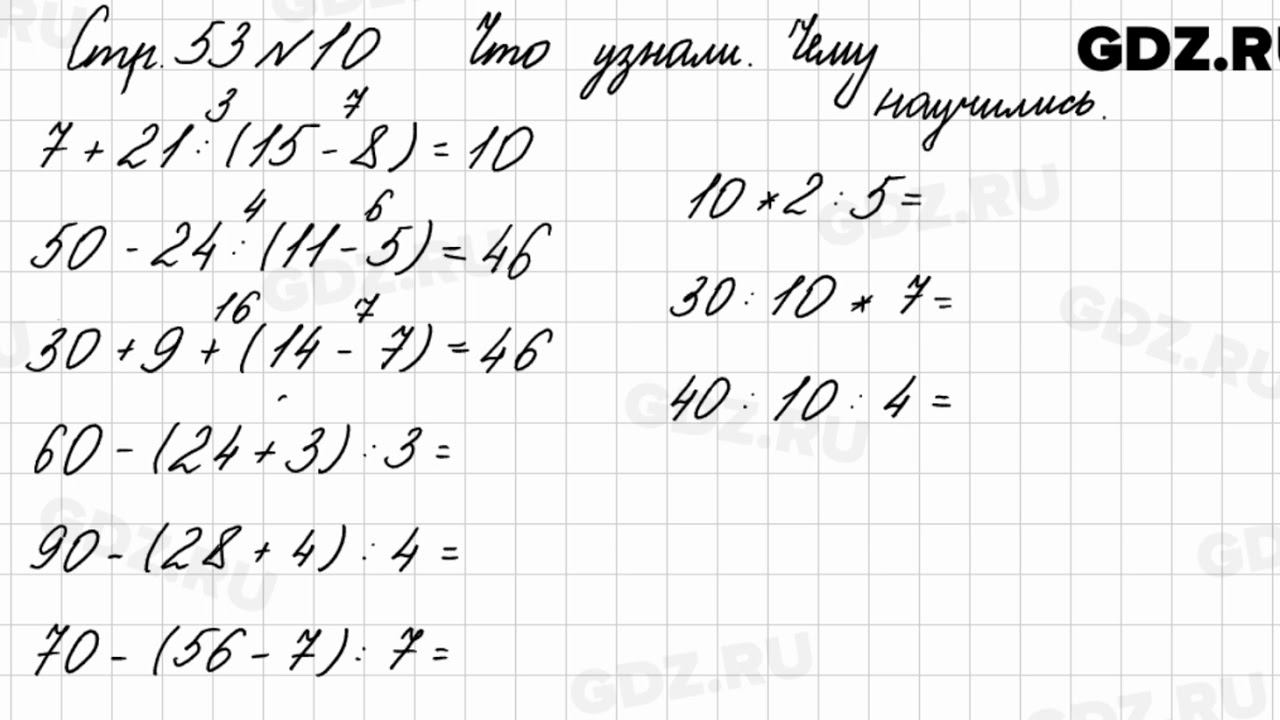 Стр. 53 № 10 Что узнали. Чему
научились.
GDZ.RU
3 7
7 + 21 : (15 - 8) = 10
4 6
50 - 24 : (11 - 5) = 46
16 7
30 + 9 + (14 - 7) = 46
60 - (24 + 3) : 3 =
90 - (28 + 4) : 4 =
70 - (56 - 7) : 7 =
10 * 2 : 5 =
30 : 10 * 7 =
40 : 10 : 4 =
GDZ.RU
GDZ.RU
GDZ.RU
GDZ.RU
GDZ.RU
GDZ.RU